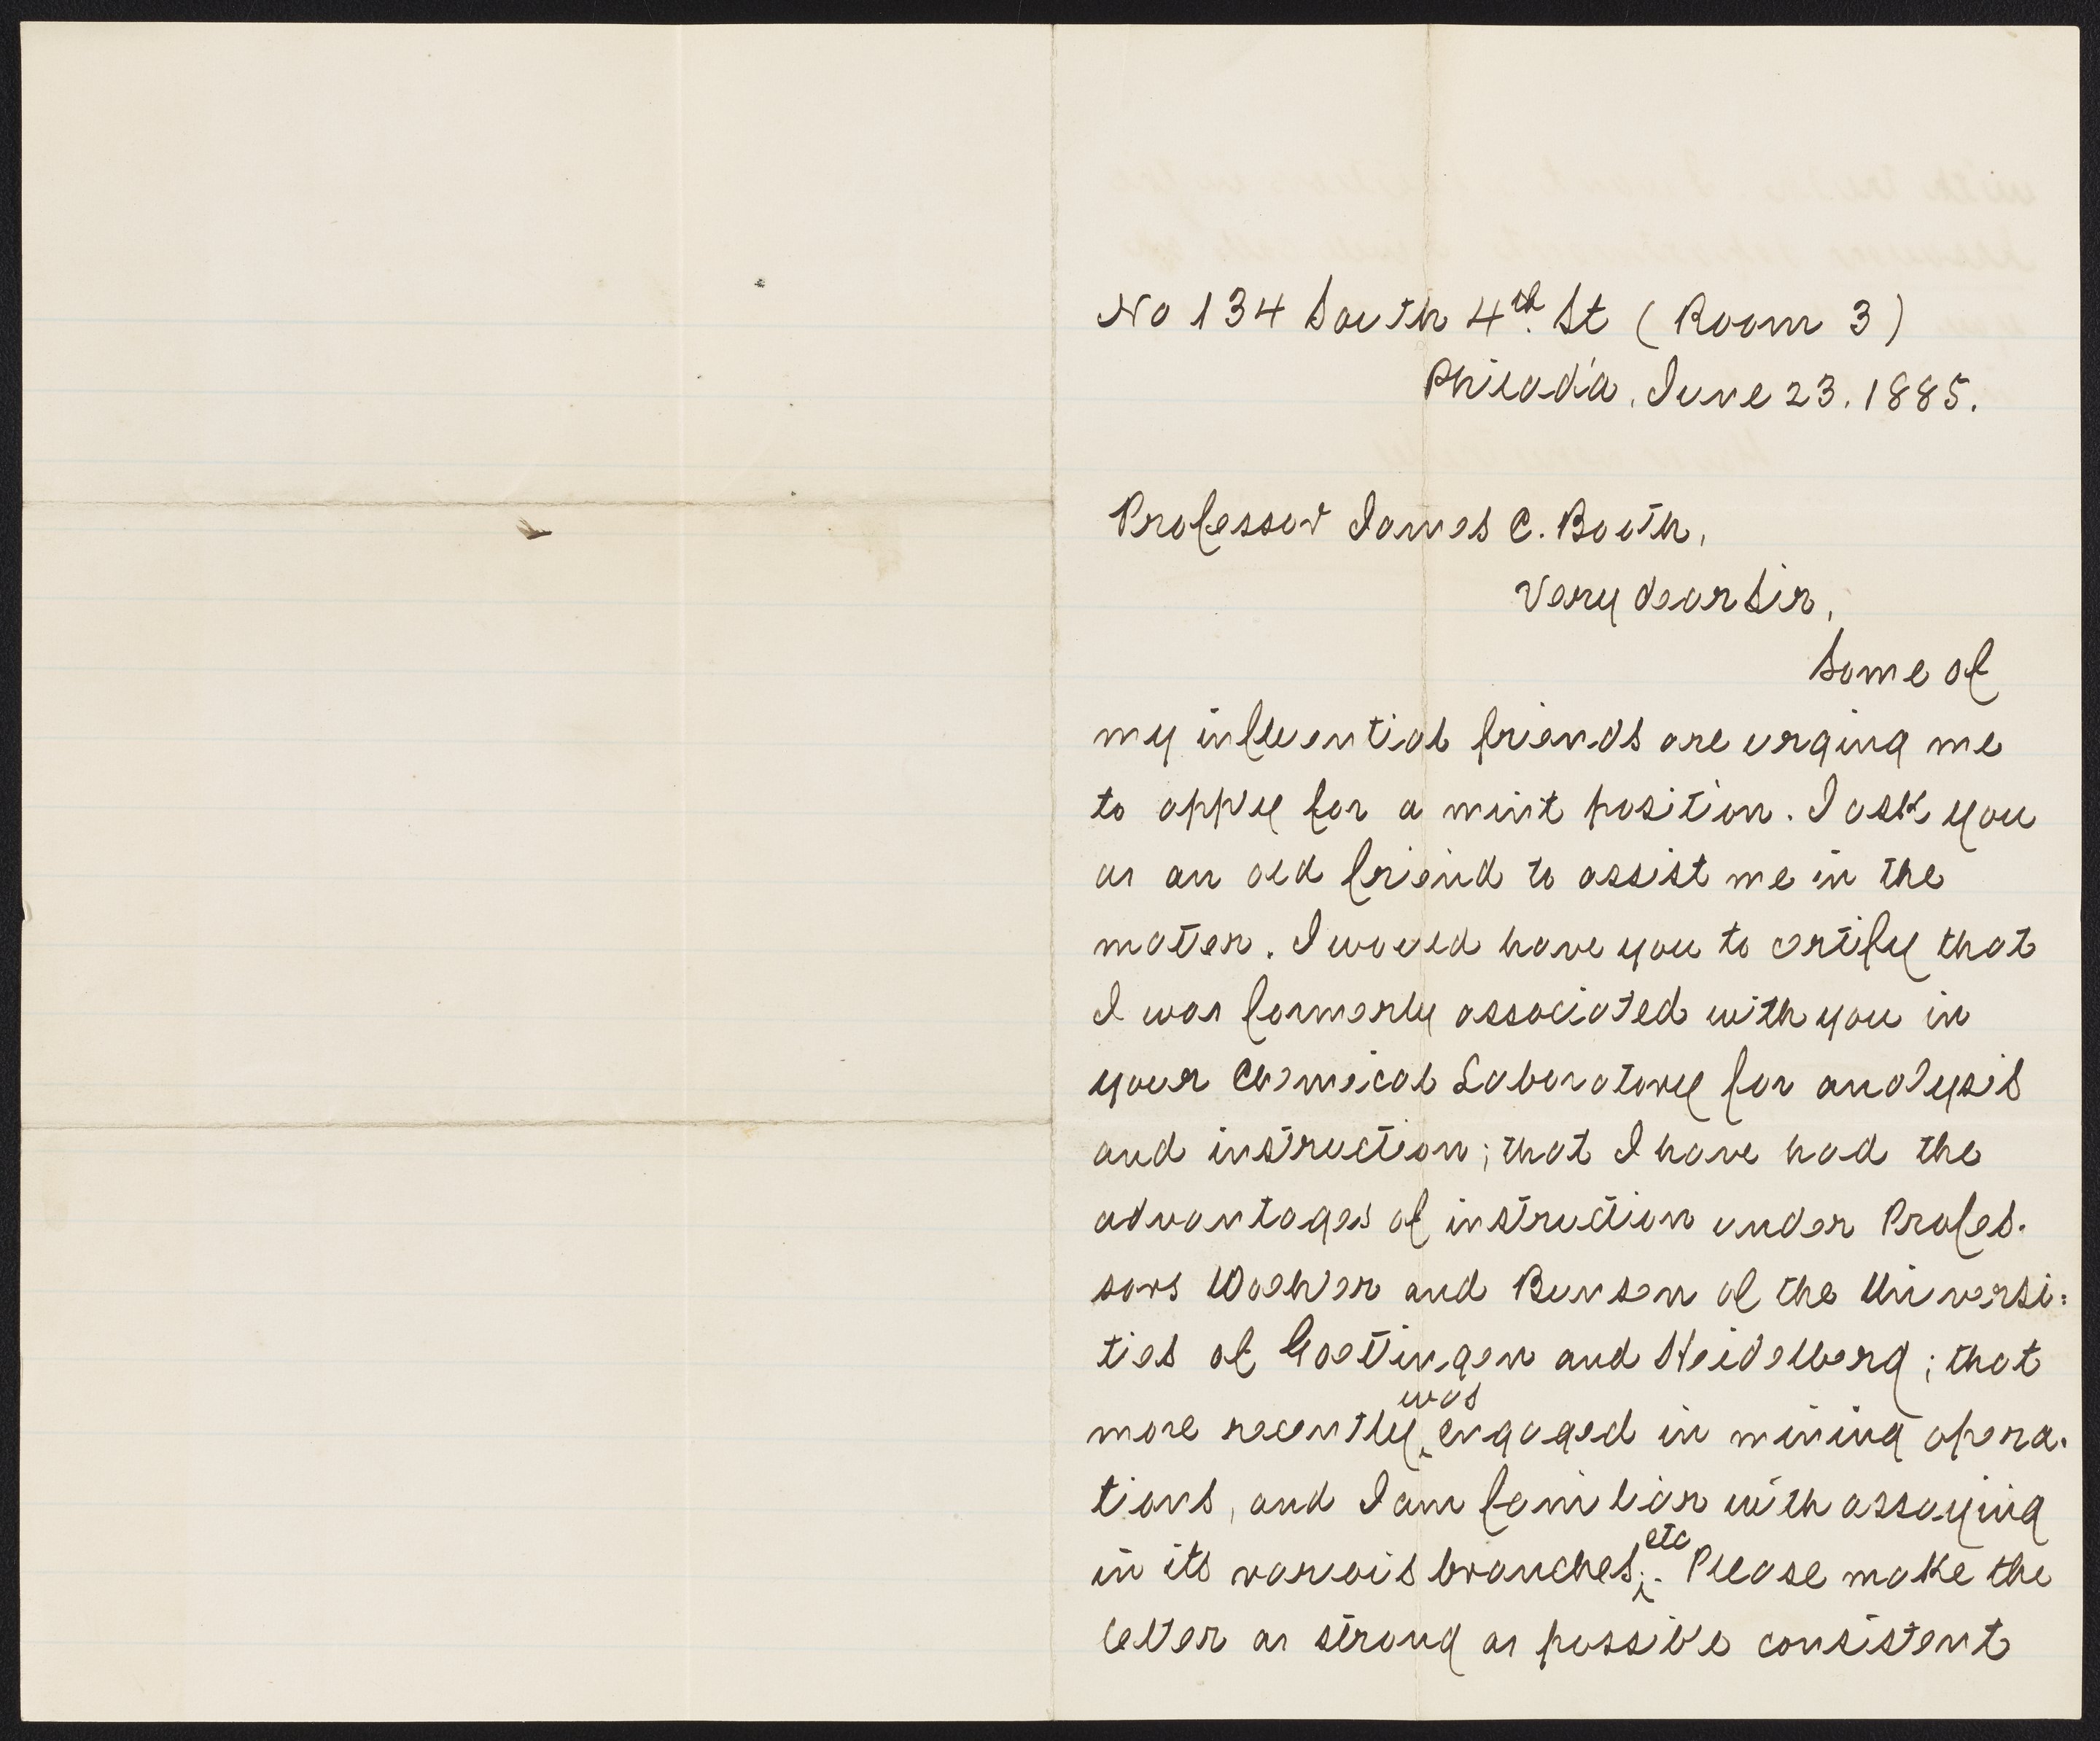 No 134 South 4th. St (Room 3)
Philad'a, June 23. 1885.
Professor James C. Booth,
Very dear Sir,
Some of
my influential friends are urging me
to apply for a mint position. I ask you
as an old friend to assist me in the
matter. I would have you to certify that
I was formerly associated with you in
your Chemical Laboratory for analysis
and instruction; that I have had the
advantages of instruction under Profes-
sors Woehler and Bunsen of the Universi-
ties of Goettingen and Heidelberg; that
was
more recently engaged in mining opera-
tions, and I am familiar with assaying
etc
in its various branches. Please make the
letter as strong as possible consistent